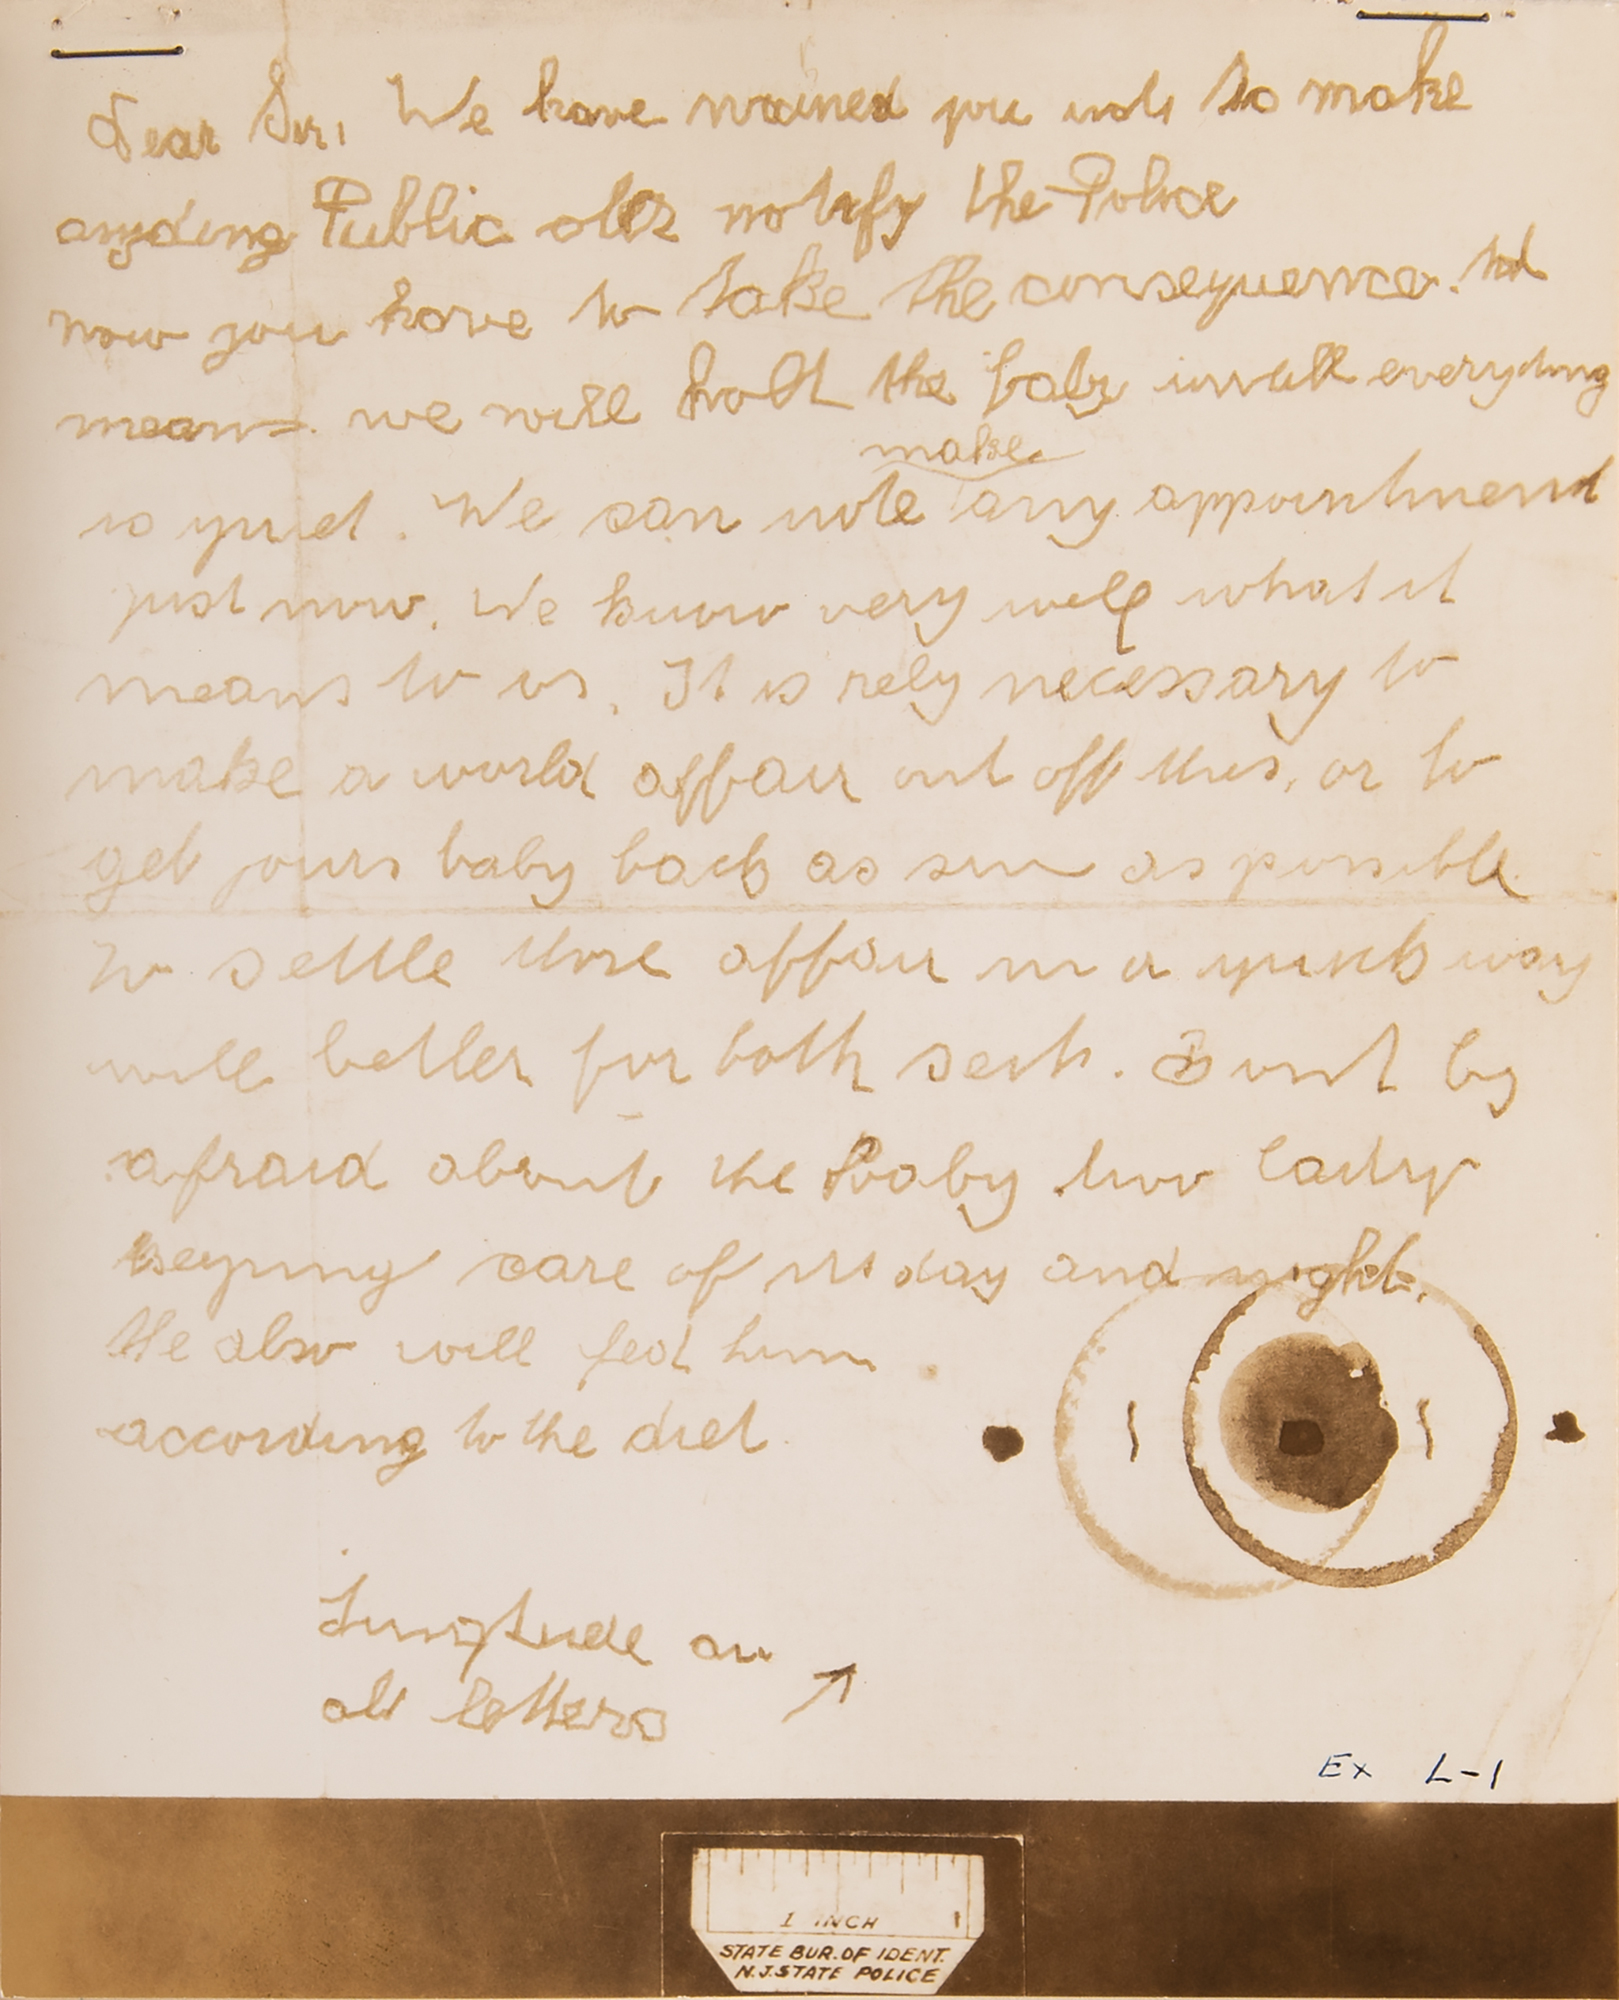 Dear Sir, We have warned you note to make
anyding Public ols notify the Police
now you have to take the consequence. tht
means we will holt the baby untill everyding
make
is quiet. We can note any appointment
just now. We know very well what it
means to us. It is rely necessary to
make a world affair out off this, or to
get yours baby back as sun as possible
To settle those affair in a quick way
will better for both seits. Dont by
afraid about the baby two lady
keeping care of its day and night.
She also will fed him
according to the diet
Singtuere on
all letters
Ex L-1
1 INCH
STATE BUR. OF IDENT.
N.J. STATE POLICE